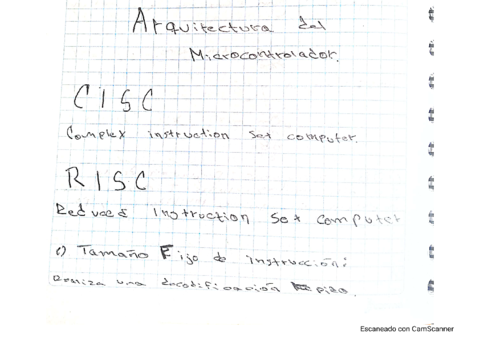 Arquitectura del
Microcontrolador.
CISC
Complex instruction set computer.
RISC
Reduced Instruction Set Computer
c) Tamaño Fijo de instrucción:
Realiza una decodificación
Escaneado con CamScanner